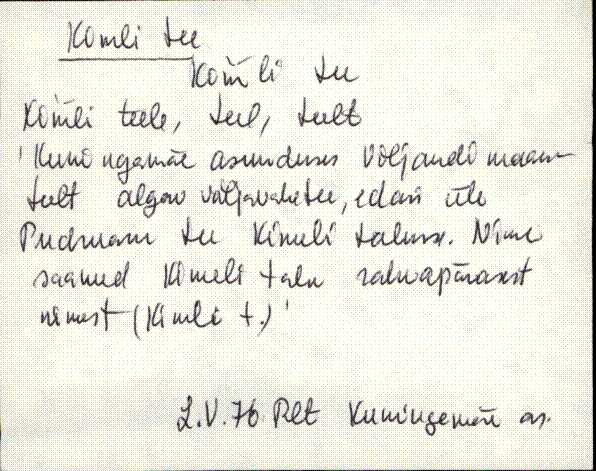 Kömli tee
Köm̀li tee
Köm̀li teele, teel, teelt
'Kuningamäe asunduses Viljandi maan-
teelt algav väljavahetee, edasi üle
Pudruam tee Kimeli talusse. Nime
saanud Kimeli talu rahvapärasest
nimest (Kimli t.)'
L.V. 76 Plt Kuningamäe as.